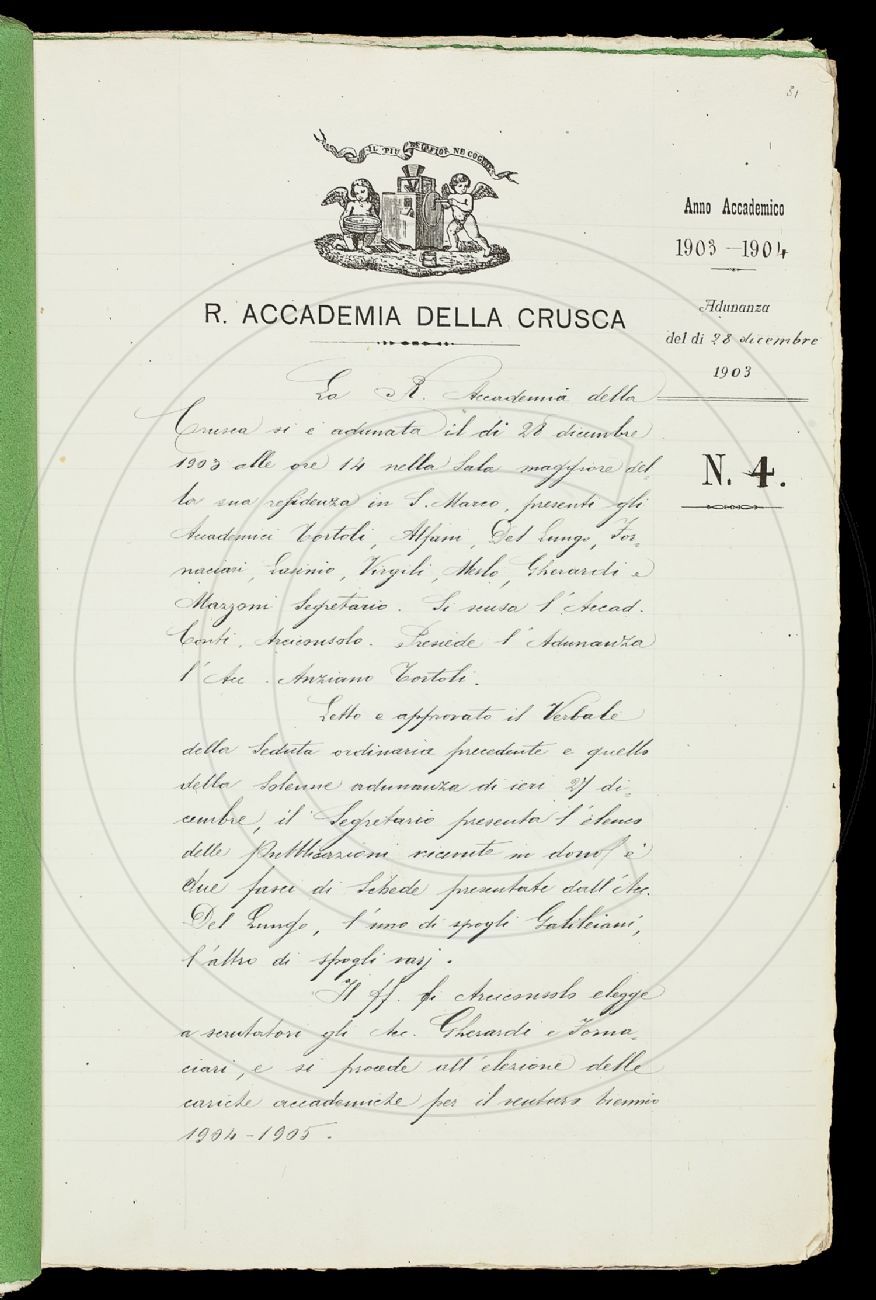 81
IL PIÙ BEL FIOR NE COGLIE
Anno Accademico
1903-1904
R. ACCADEMIA DELLA CRUSCA
Adunanza
del dì 28 dicembre
1903
N. 4.
La R. Accademia della
Crusca si è adunata il dì 28 dicembre
1903 alle ore 14 nella Sala maggiore del-
la sua residenza in S. Marco, presenti gli
Accademici Tortoli, Alfani, Del Lungo, For-
naciari, Lasinio, Virgili, Merlo, Gherardi e
Mazzoni Segretario. Si scusa l'Accad.
Conti, Arciconsolo. Presiede l'Adunanza
l'Acc. Anziano Tortoli.
Letto e approvato il Verbale
della Seduta ordinaria precedente e quello
della Solenne adunanza di ieri 27 di-
cembre, il Segretario presenta l'elenco
delle Pubblicazioni ricevute in dono e
due fasci di Schede presentate dall'Acc.
Del Lungo, l'uno di spogli Galileiani,
l'altro di spogli varj.
Il ff. di Arciconsolo elegge
a scrutatori gli Acc. Gherardi e Forna-
ciari, e si procede all'elezione delle
cariche accademiche per il venturo biennio
1904-1905.